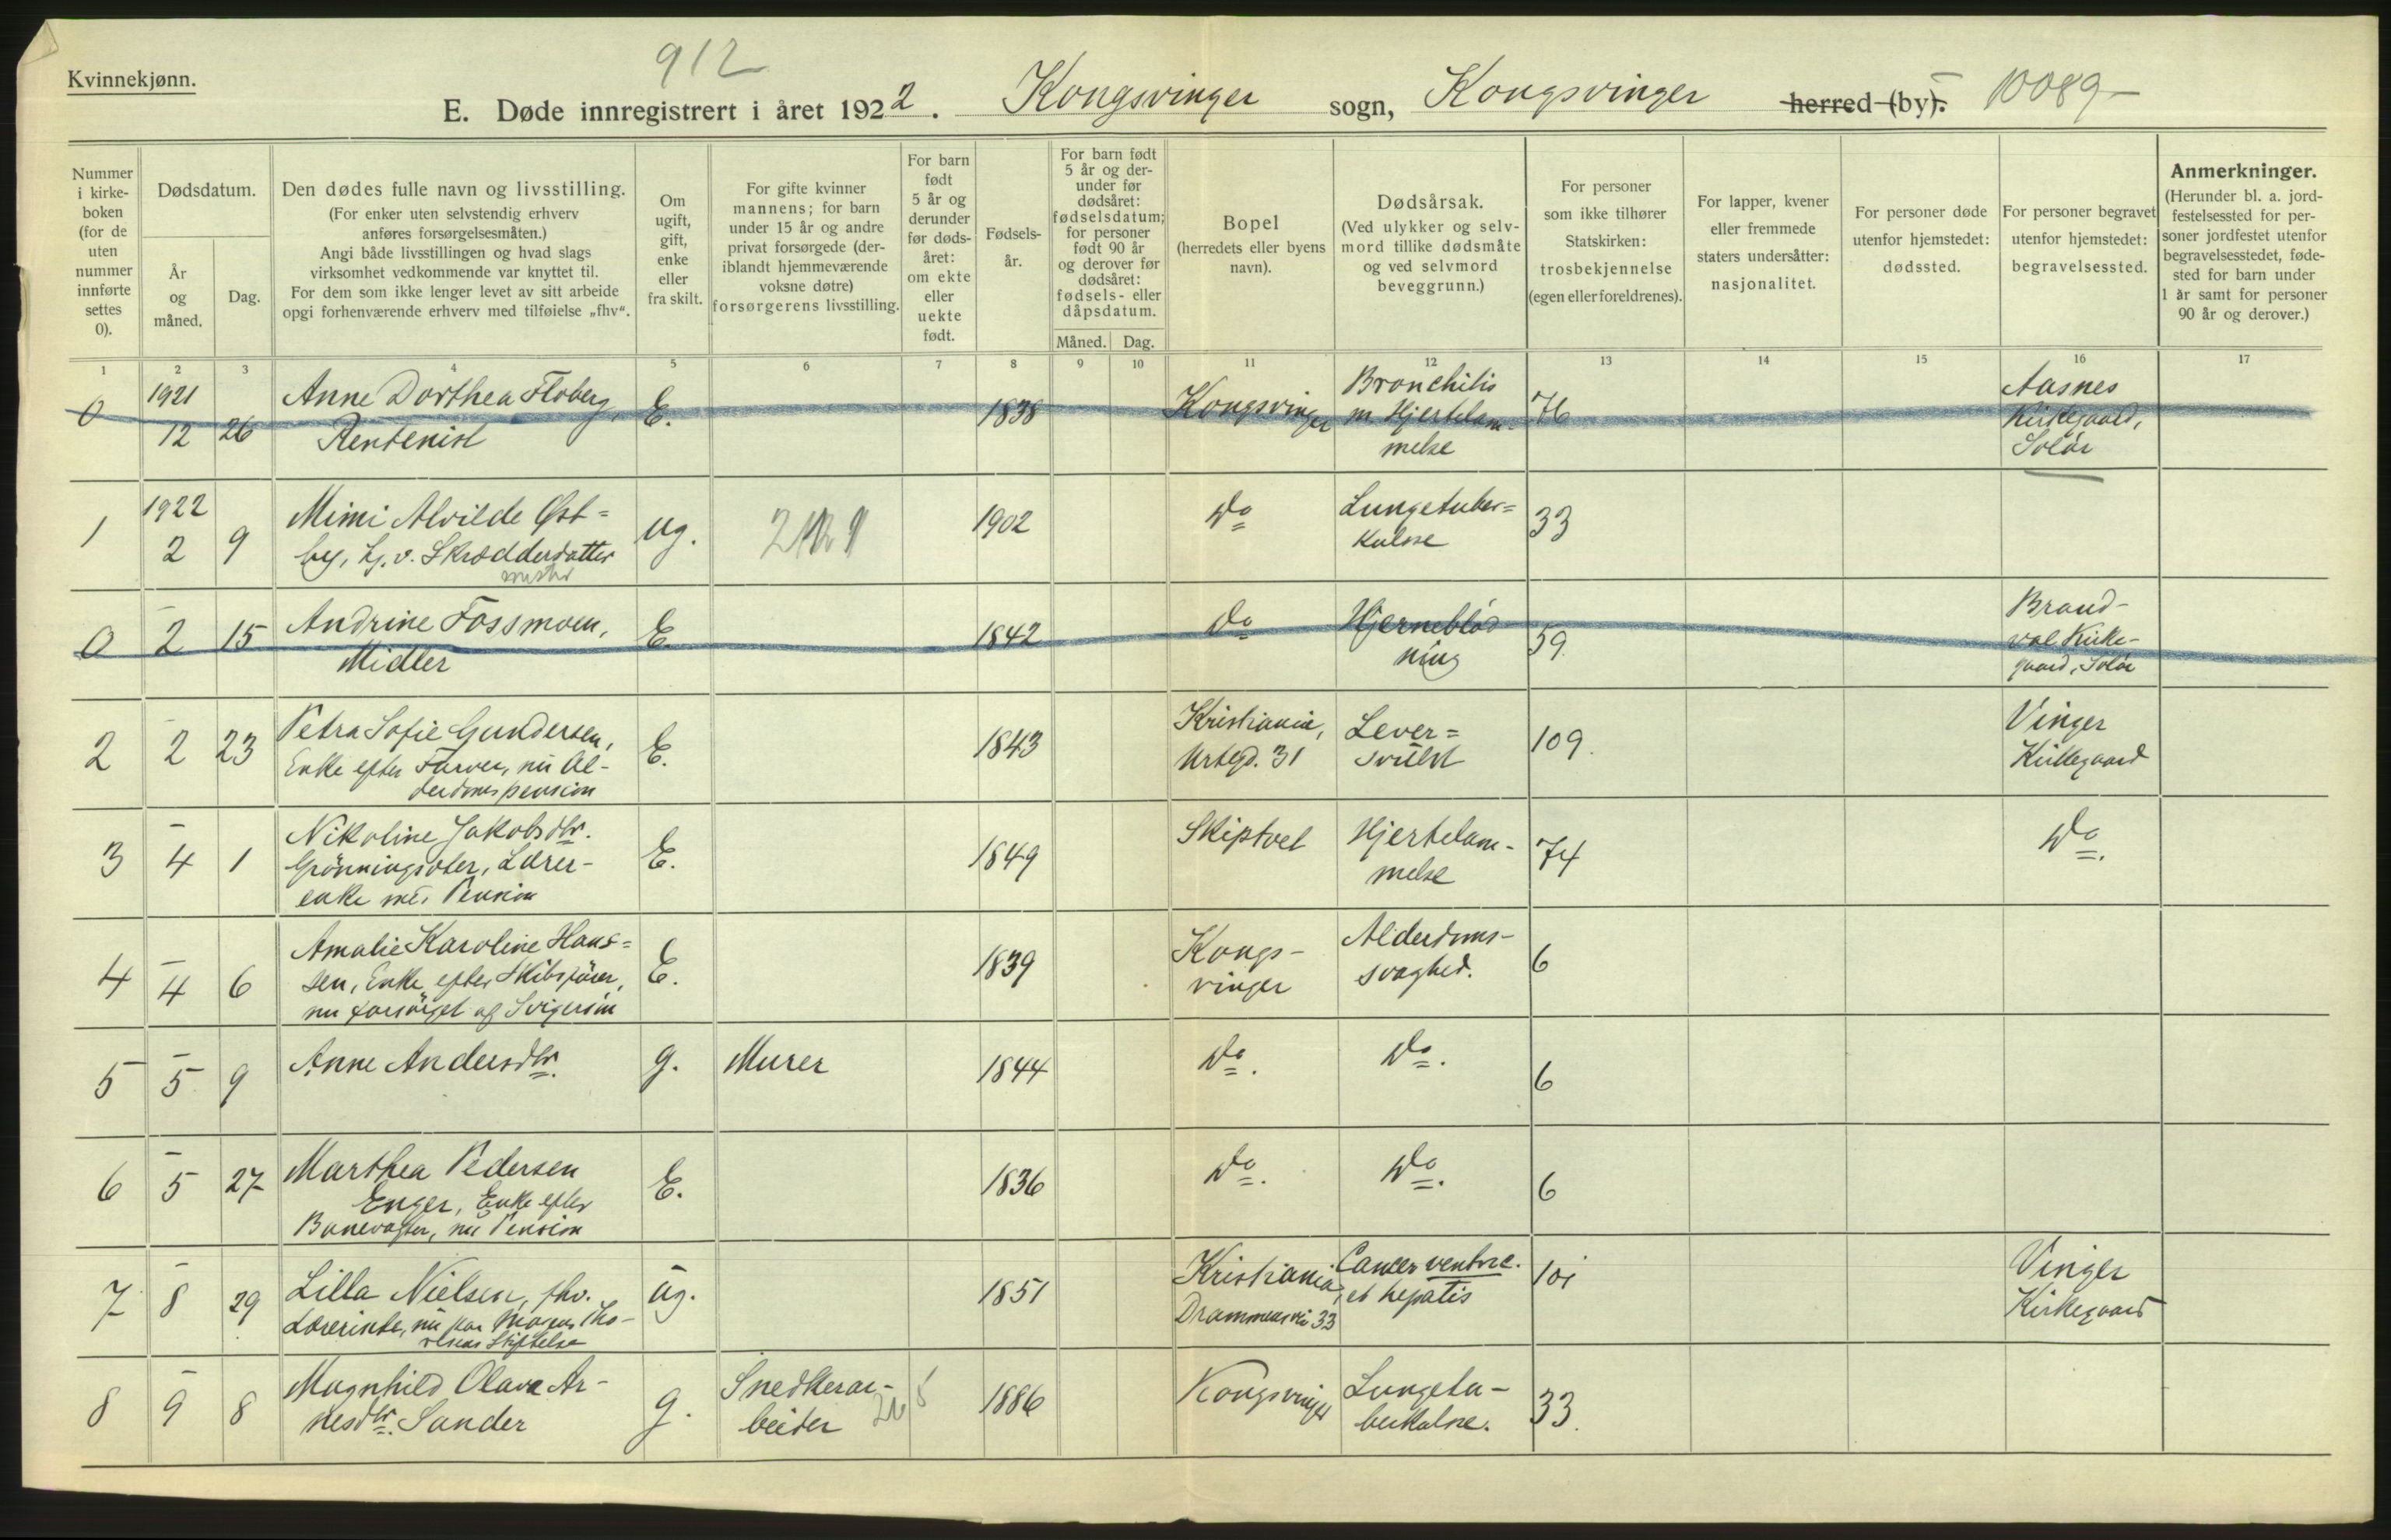 Kvinnekjønn.
912
E. Døde innregistrert i året 1922. Kongsvinger sogn, Kongsvinger herred (by). 10089-
Nummer
i kirke-
boken
(for de
uten
nummer
innførte
settes
0).
Dødsdatum.
År
og
måned.
Dag.
Den dødes fulle navn og livsstilling.
(For enker uten selvstendig erhverv
anføres forsørgelsesmåten.)
Angi både livsstillingen og hvad slags
virksomhet vedkommende var knyttet til.
For dem som ikke lenger levet av sitt arbeide
opgi forhenværende erhverv med tilføielse „fhv“.
Om
ugift,
gift,
enke
eller
fra skilt.
For gifte kvinner
mannens; for barn
under 15 år og andre
privat forsørgede (der-
iblandt hjemmeværende
voksne døtre)
forsørgerens livsstilling.
For barn
født
5 år og
derunder
før døds-
året:
om ekte
eller
uekte
født.
Fødsels-
år.
For barn født
5 år og der-
under før
dødsåret:
fødselsdatum;
for personer
født 90 år
og derover før
dødsåret:
fødsels- eller
dåpsdatum.
Måned. Dag.
Bopel
(herredets eller byens
navn).
Dødsårsak.
(Ved ulykker og selv-
mord tillike dødsmåte
og ved selvmord
beveggrunn.)
For personer
som ikke tilhører
Statskirken:
trosbekjennelse
(egen eller foreldrenes).
For lapper, kvener
eller fremmede
staters undersåtter:
nasjonalitet.
For personer døde
utenfor hjemstedet:
dødssted.
For personer begravet
utenfor hjemstedet:
begravelsessted.
Anmerkninger.
(Herunder bl. a. jord-
festelsessted for per-
soner jordfestet utenfor
begravelsesstedet, føde-
sted for barn under
1 år samt for personer
90 år og derover.)
1 2 3 4 5 6 7 8 9 10 11 12 13 14 15 16 17
0
1921
12 26
Anne Dorthea Floberg,
Rentenist
E.
1838
Kongsvinger
Bronchitis
m. Hjertelam-
melse
76
Aasnes
Kirkegaard,
Solør
1
1922
2 9
Mimi Alvilde Øst=
by, hj. v. Skrædderdatter
mester
ug.
1902
Do
Lungetuber=
kulose
33
0
2 15
Andrine Fossmoen,
Midler
E.
1842
do
Hjerneblød
ning
59
Brand-
val Kirke-
gaard, Solør
2
2 23
Petra Sofie Gundersen,
Enke efter Farver, nu Al-
derdomspension
E.
1843
Kristiania,
Urtegd. 31
Lever=
svulst
109.
Vinger
Kirkegaard
3
4 1
Nikoline Jakobsdtr.
Grönningsæter, Lærer-
enke med Pension
E.
1849
Skiptvet
Hjertelam-
melse
74
Do.
4
4 6
Amalie Karoline Hans=
sen, Enke efter Skibsfører,
nu forsørget af Svigersøn
E.
1839
Kongs-
vinger
Alderdoms-
svaghed.
6
5
5 9
Anne Andersdtr.
g.
Murer
1844
Do.
Do.
6
6
5 27
Marthea Pedersen
Enger, Enke efter
Banevogter, nu Pension
E.
1836
Do.
Do.
6
7
8 29
Lilla Nielsen, fhv.
Lærerinde, nu paa
Stiftelse
ug.
1851
Kristiania,
Drammensvei 33
Cancer ventric.
et hepatis
101
Vinger
Kirkegaard
8
9 8
Magnhild Olava Ar-
nesdtr. Sander
g.
Snedkerar-
beider
1886
Kongsvinger
Lungetu-
berkulose.
33.